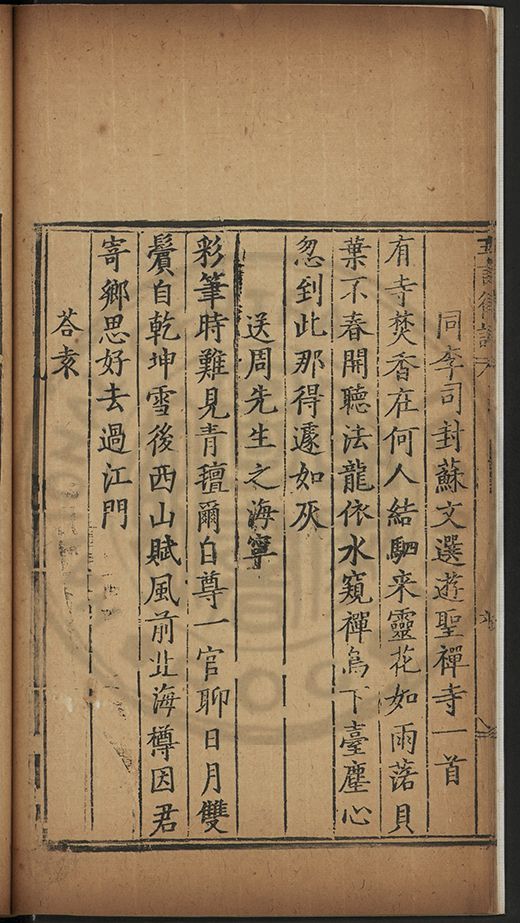 同李司封蘇文選遊聖禪寺一首
有寺焚香在何人結駟来靈花如雨落貝
葉不春開聽法龍依水窺禪鳥下臺塵心
忽到此那得遽如灰
送周先生之海寧
彩筆時難見青氊爾自尊一官聊日月雙
鬢自乾坤雪後西山賦風前北海樽因君
寄鄉思好去過江門
荅袁